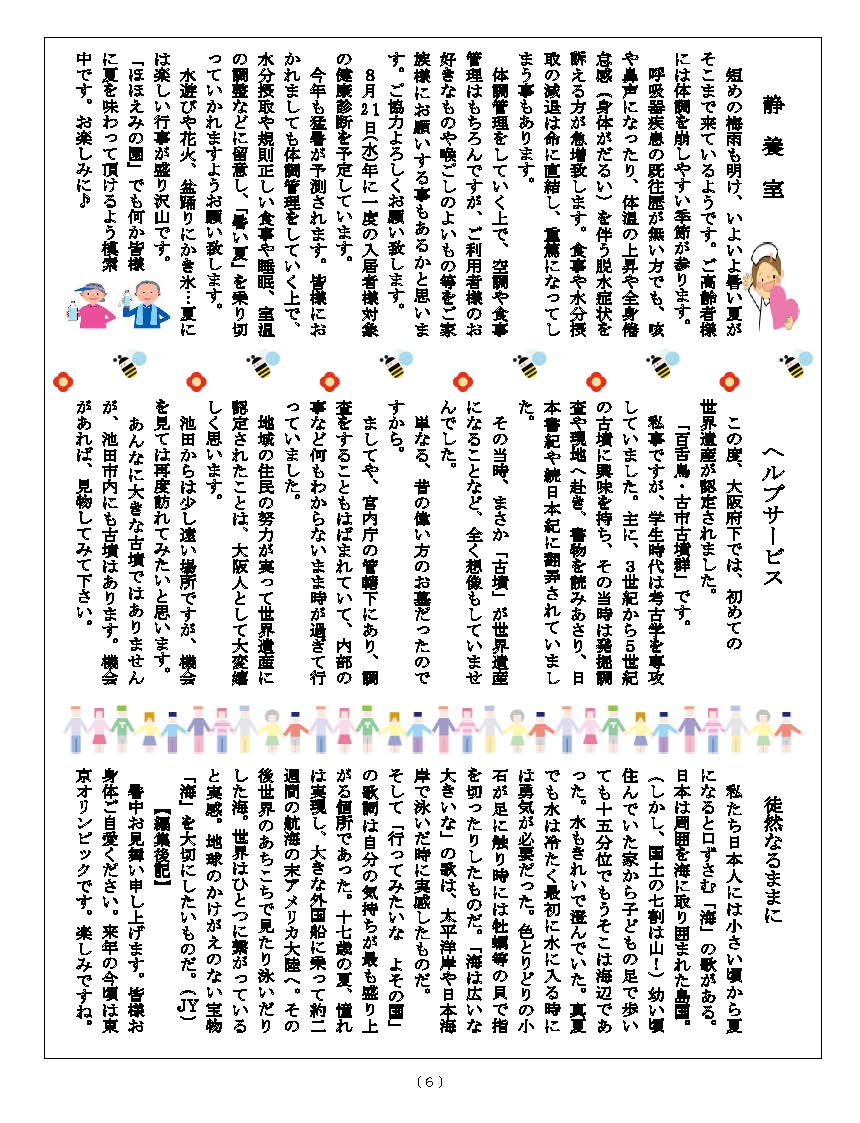 静養室
短めの梅雨も明け、いよいよ暑い夏が
そこまで来ているようです。ご高齢者様
には体調を崩しやすい季節が参ります。
呼吸器疾患の既往歴が無い方でも、咳
や鼻声になったり、体温の上昇や全身倦
怠感（身体がだるい）を伴う脱水症状を
訴える方が急増致します。食事や水分摂
取の減退は命に直結し、重篤になってし
まう事もあります。
体調管理をしていく上で、空調や食事
管理はもちろんですが、ご利用者様のお
好きなものや喉ごしのよいもの等をご家
族様にお願いする事もあるかと思いま
す。ご協力よろしくお願い致します。
８月２１日㈬年に一度の入居者様対象
の健康診断を予定しています。
今年も猛暑が予測されます。皆様にお
かれましても体調管理をしていく上で、
水分摂取や規則正しい食事や睡眠、室温
の調整などに留意し、「暑い夏」を乗り切
っていかれますようお願い致します。
水遊びや花火、盆踊りにかき氷…夏に
は楽しい行事が盛り沢山です。
「ほほえみの園」でも何か皆様
に夏を味わって頂けるよう模索
中です。お楽しみに♪
ヘルプサービス
この度、大阪府下では、初めての
世界遺産が認定されました。
「百舌鳥・古市古墳群」です。
私事ですが、学生時代は考古学を専攻
していました。主に、３世紀から５世紀
の古墳に興味を持ち、その当時は発掘調
査や現地へ赴き、書物を読みあさり、日
本書紀や続日本紀に翻弄されていまし
た。
その当時、まさか「古墳」が世界遺産
になることなど、全く想像もしていませ
んでした。
単なる、昔の偉い方のお墓だったので
すから。
ましてや、宮内庁の管轄下にあり、調
査をすることもはばまれていて、内部の
事など何もわからないまま時が過ぎて行
っていました。
地域の住民の努力が実って世界遺産に
認定されたことは、大阪人として大変嬉
しく思います。
池田からは少し遠い場所ですが、機会
を見ては再度訪れてみたいと思います。
あんなに大きな古墳ではありません
が、池田市内にも古墳はあります。機会
があれば、見物してみて下さい。
徒然なるままに
私たち日本人には小さい頃から夏
になると口ずさむ「海」の歌がある。
日本は周囲を海に取り囲まれた島国。
（しかし、国土の七割は山！）幼い頃
住んでいた家から子どもの足で歩い
ても十五分位でもうそこは海辺であ
った。水もきれいで澄んでいた。真夏
でも水は冷たく最初に水に入る時に
は勇気が必要だった。色とりどりの小
石が足に触り時には牡蠣等の貝で指
を切ったりしたものだ。「海は広いな
大きいな」の歌は、太平洋岸や日本海
岸で泳いだ時に実感したものだ。
そして「行ってみたいな　よその国」
の歌詞は自分の気持ちが最も盛り上
がる個所であった。十七歳の夏、憧れ
は実現し、大きな外国船に乗って約二
週間の航海の末アメリカ大陸へ。その
後世界のあちこちで見たり泳いだり
した海。世界はひとつに繋がっている
と実感。地球のかけがえのない宝物
「海」を大切にしたいものだ。（JY）
【編集後記】
暑中お見舞い申し上げます。皆様お
身体ご自愛ください。来年の今頃は東
京オリンピックです。楽しみですね。
（６）